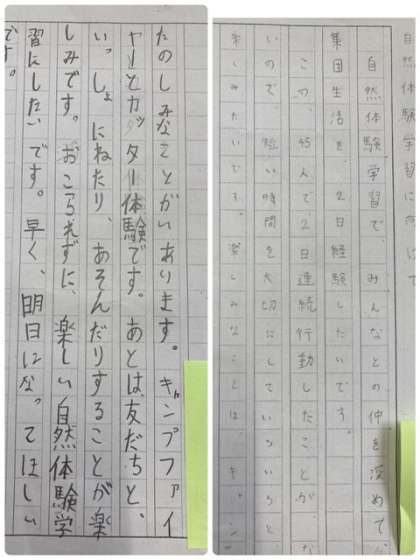 たのしみなことがいあります。キャンプファイ
ヤーとカッター体験です。あとは、友だちと、
い。しょにねたり、あそんだりすることが楽
しみです。おこられずに、楽しい自然体験学
習にしたいです。早く、明日にな。てほしい
です。
自然体験学習に向けて
自然体験学習で、みんなとの仲を深めて、
集団生活を、2日経験したいです。
この、45人で、2日連続行動したことが、な
いので、短い時間を大切にしていろいろと、
楽しみたいです。楽しみなことは、キャン